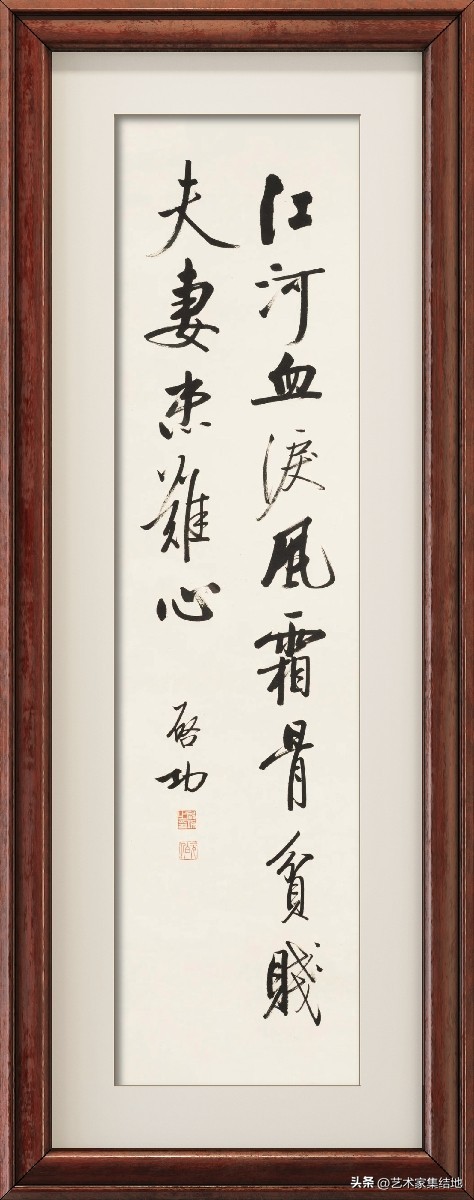 江河血淚風霜骨貧賤
夫妻患難心
啓功
头条 @艺术家集结地